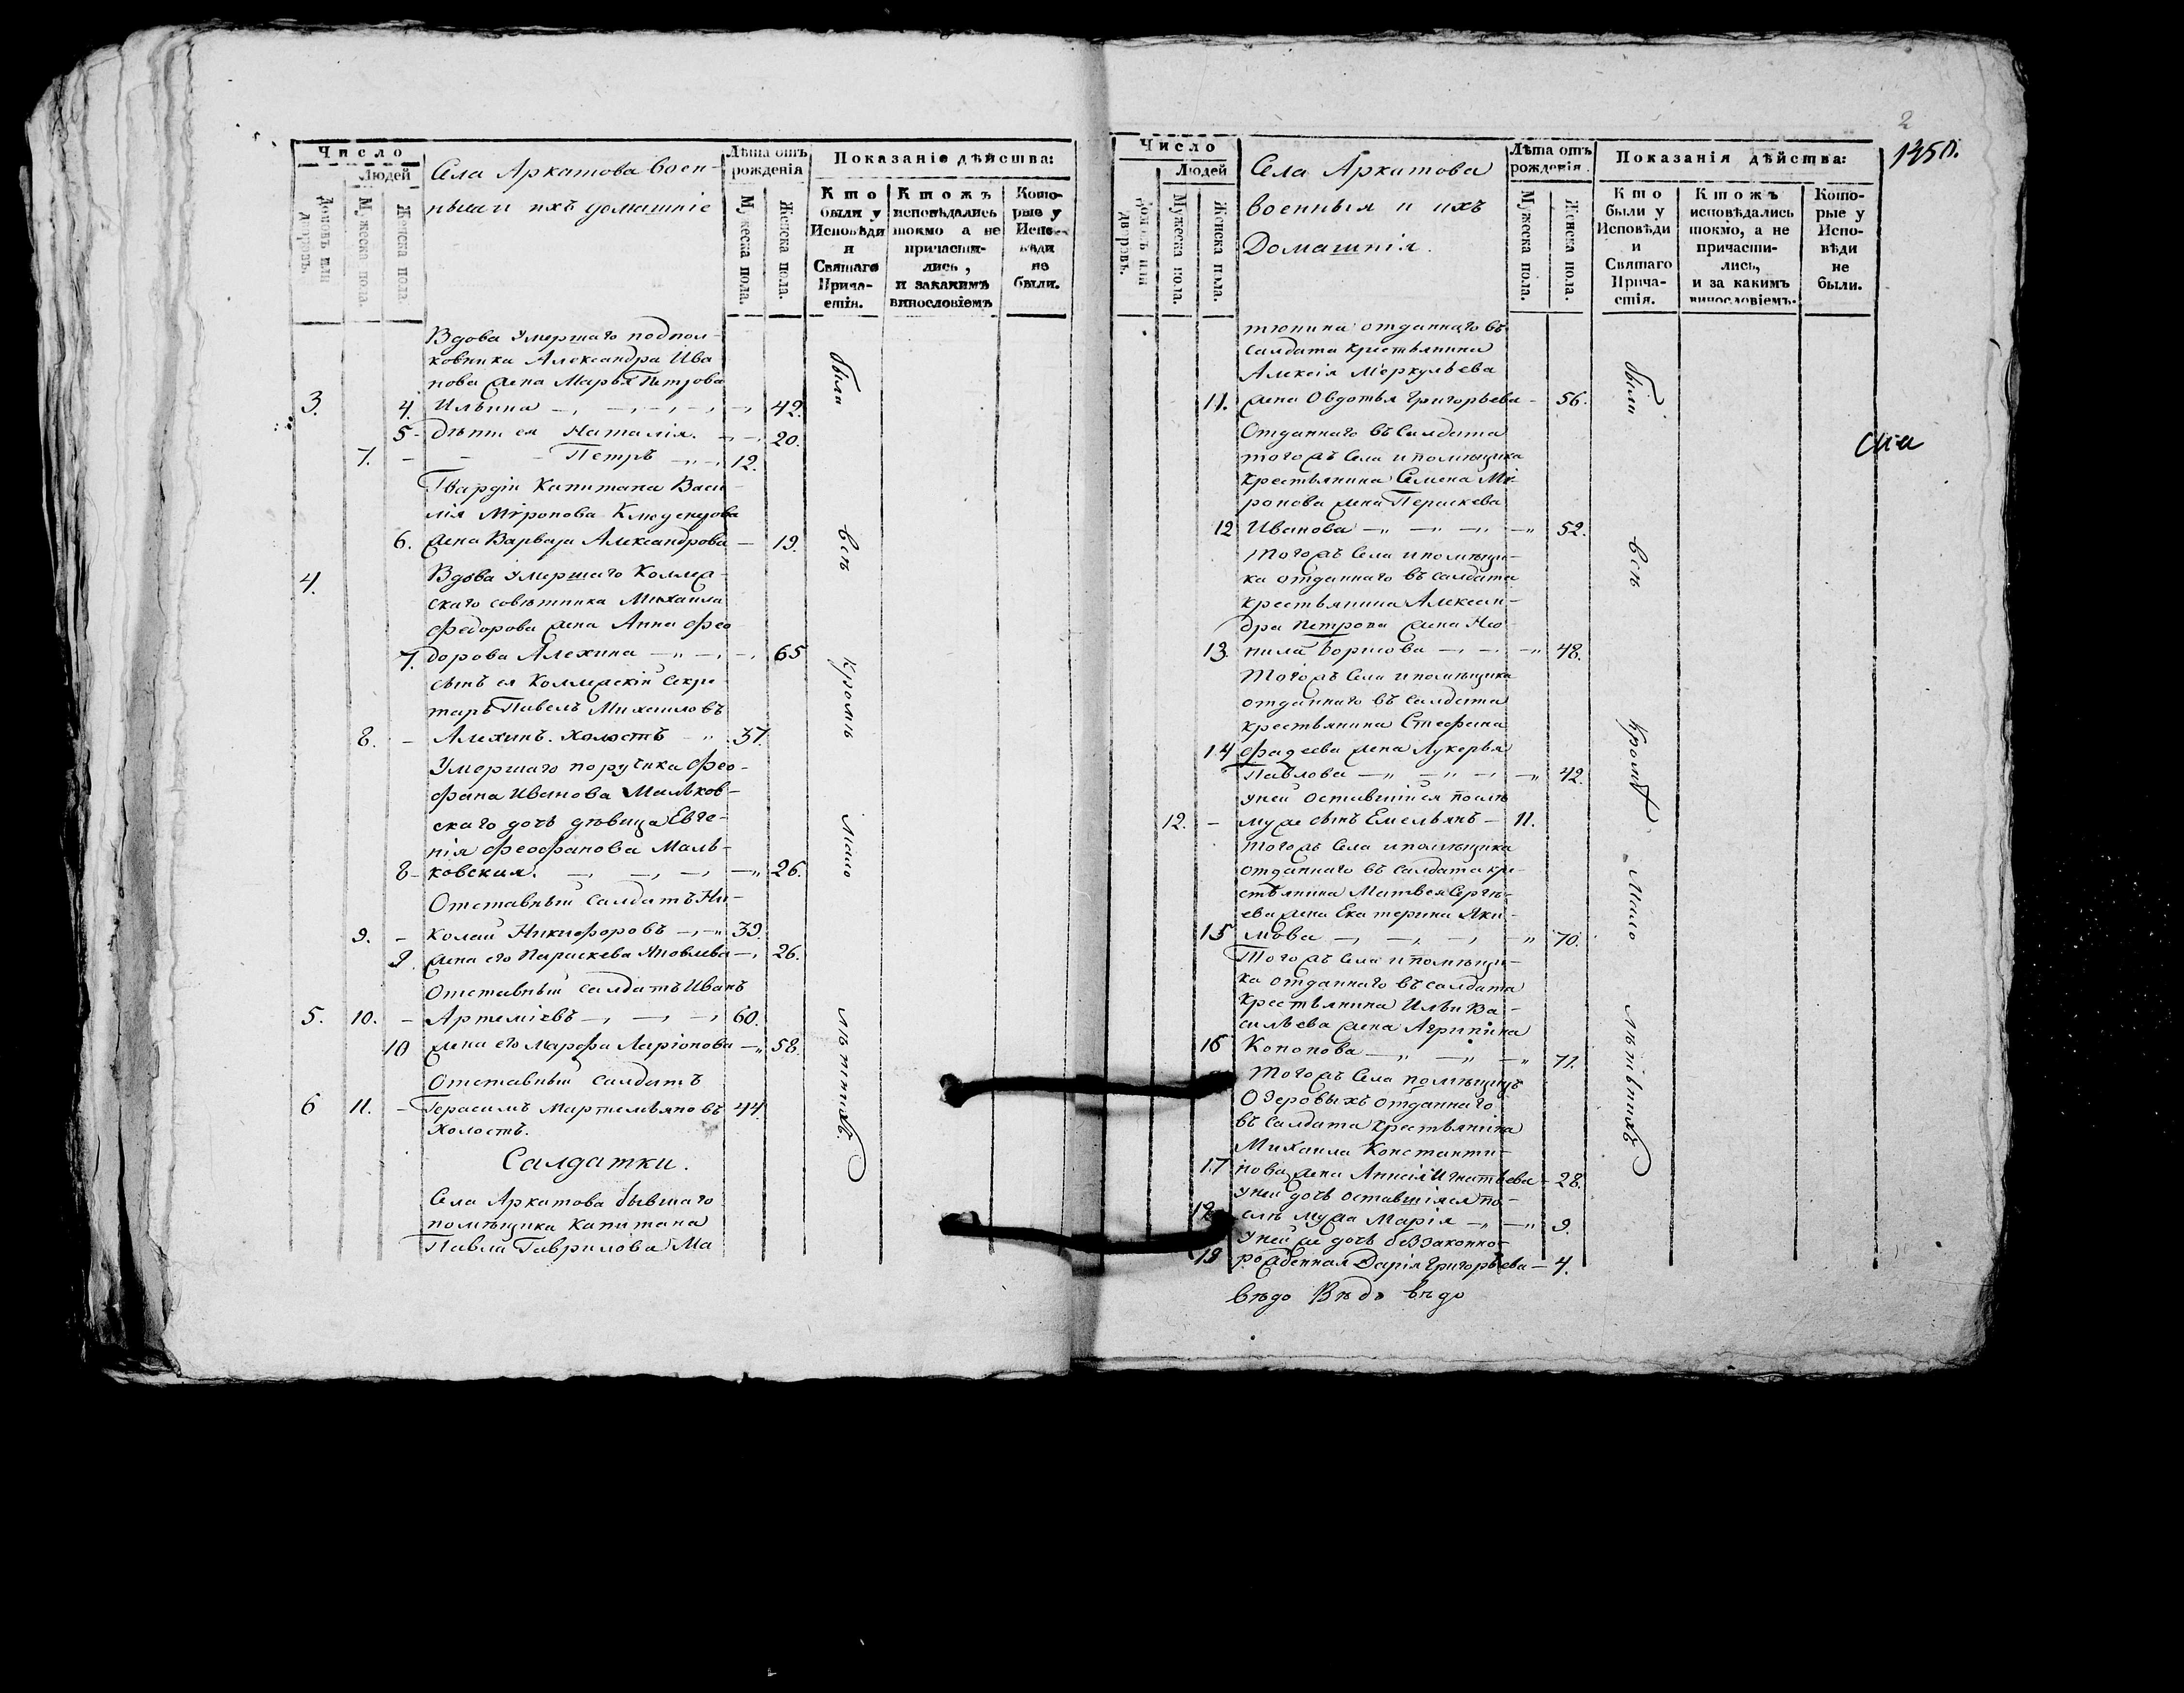 Число
Людей
Домовъ или дворовъ.
Мужеска пола.
Женска пола.
Села Аркатова воен-
ныи и ихъ домашніе
Лѣта отъ рожденія
Мужеска пола.
Женска пола.
Показаніе дѣйства:
Кто были у Исповѣди и Святаго Прича-стія.
Ктожъ исповѣдались токмо а не причасти-лись, и закакимъ винословіемъ
Кото-рые у Испо-вѣди не были.
Вдова умершаго подпол-
ковника Александра Ива
нова жена Марья Петрова
3. 4. Ильина 42.
5 - дѣти ея Наталія. 20.
7. - Петръ 12.
Гвардіи Капитана Васи-
лія Миронова
6. жена Варвара Александрова - 19.
4. Вдова умершаго Коллеж-
скаго совѣтника Михаила
Федорова жена Анна Фео
7. дорова Алехина 65
сынъ ея Коллежскій Секре-
тарь Павелъ Михаиловъ
8. - Алехинъ. холостъ 37.
Умершаго поручика Фео-
фана Иванова Мальков-
скаго дочь дѣвица Евге-
нія Феофанова Маль-
8 - ковская. 26.
Отставный салдатъ Ни-
9. - колай Никифоровъ 39.
9. жена его Параскева Яковлева 26.
Отставный салдатъ Иванъ
5. 10. - Артеміевъ 60.
10 жена его Марфа Ларіонова 58.
Отставный салдатъ
6 11. - Герасимъ Мартемьяновъ 44.
холостъ.
Салдатки.
Села Аркатова бывшаго
помѣщика Капитана
Павла Гаврилова Ма
были всѣ кромѣ мало лѣтнихъ.
2
1350.
Число
Людей
Домовъ или дворовъ.
Мужеска пола.
Женска пола.
Села Аркатова
военныя и ихъ
Домашнія.
Лѣта отъ рожденія.
Мужеска пола.
Женска пола.
Показанія дѣйства:
Кто были у Исповѣди и Святаго Прича-стія.
Ктожъ исповѣдались токмо, а не причасти-лись, и за какимъ винословіемъ.
Кото-рые у Испо-вѣди не были.
тюнина отданнаго въ
салдата крестьянина
Алексія Меркульева
11. жена Овдотья Григорьева - 56.
Отданнаго въ Салдата
тогожъ Села и помѣщика
Крестьянина Семена Ми-
ронова жена Пераскева
12 Иванова 52.
Тогожъ Села и помѣщи-
ка отданнаго въ салдата
крестьянина Алексан-
дра Петрова жена Нео-
13. нила Борисова 48.
Тогожъ Села и помѣщика
отданнаго въ салдата
крестьянина Стефана
14 Фадеева жена Лукерья
Павлова 42.
у ней оставшійся послѣ
12. - мужа сынъ Емельянъ - 11.
Тогожъ Села и помѣщика
отданнаго въ салдата кре-
стьянина Матвея Сергѣ-
ева жена Екатерина Яки-
15 мова 70.
Тогожъ Села и помѣщи-
ка отданнаго въ салдата
Крестьянина Ильи Ва-
сильева жена Агрипина
16 Кононова 71.
Тогожъ Села помѣщицъ
Озеровыхъ отданнаго
въ Салдата крестьянина
Михаила Константи-
17 нова жена Анисія Игнатьева - 28.
у ней дочь оставшіяся по-
слѣ мужа Марія 9.
у ней же дочь беззаконно-
19 рожденная Дарія Григорьева - 4.
были всѣ Кромѣ Мало лѣтнихъ